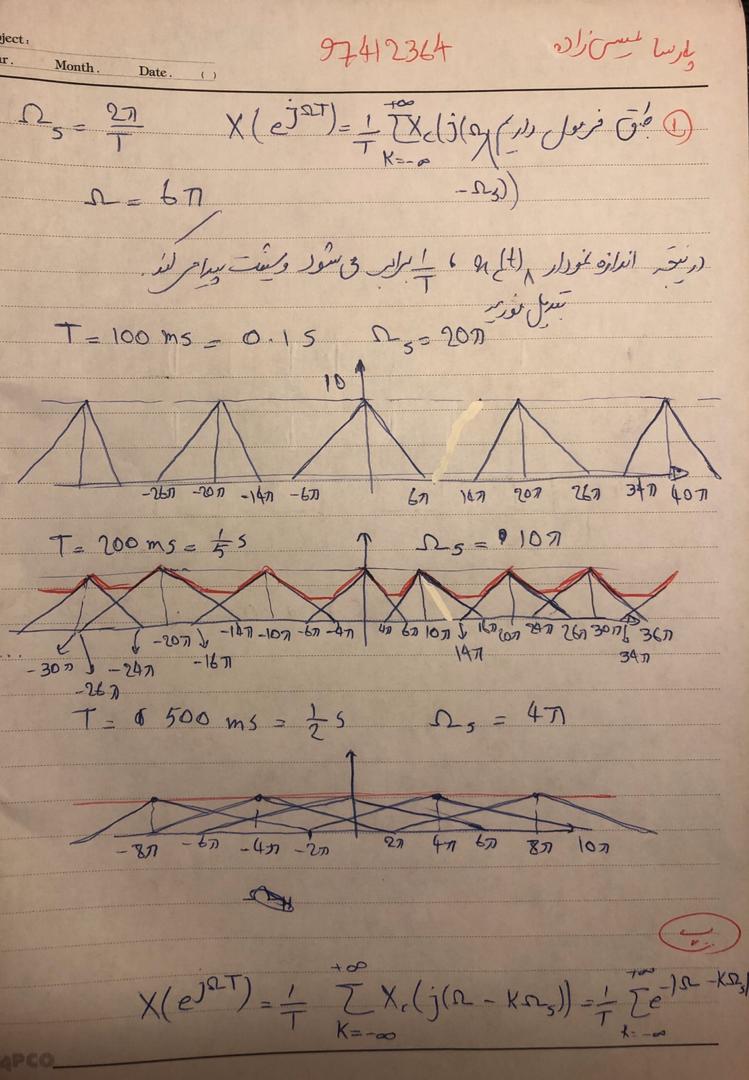 ject:
ar. Month. Date. ( )
پارسا عیسی زاده 97412364
① طبق فرمول داریم X(e^{jΩT}) = 1/T Σ_{K=-∞}^{+∞} X_c(j(Ω
-Ω_s))
Ω_s = 2π/T
Ω = 6π
در نتیجه اندازه نمودار تبدیل فوریه x_c(t)، 1/T برابر می شود و شیفت پیدا می کند.
T = 100 ms = 0.1 s Ω_s = 20π
10
-26π -20π -14π -6π 6π 14π 20π 26π 34π 40π
T = 200 ms = 1/5 s Ω_s = 10π
-20π -14π -10π -6π -4π 4π 6π 10π 16π 20π 24π 26π 30π 36π
... -30π -24π -16π 14π 34π
-26π
T = 500 ms = 1/2 s Ω_s = 4π
-8π -6π -4π -2π 2π 4π 6π 8π 10π
ب
X(e^{jΩT}) = 1/T Σ_{K=-∞}^{+∞} X_c(j(Ω - KΩ_s)) = 1/T Σ_{K=-∞}^{+∞} e^{-|Ω - KΩ_s|}
APCO